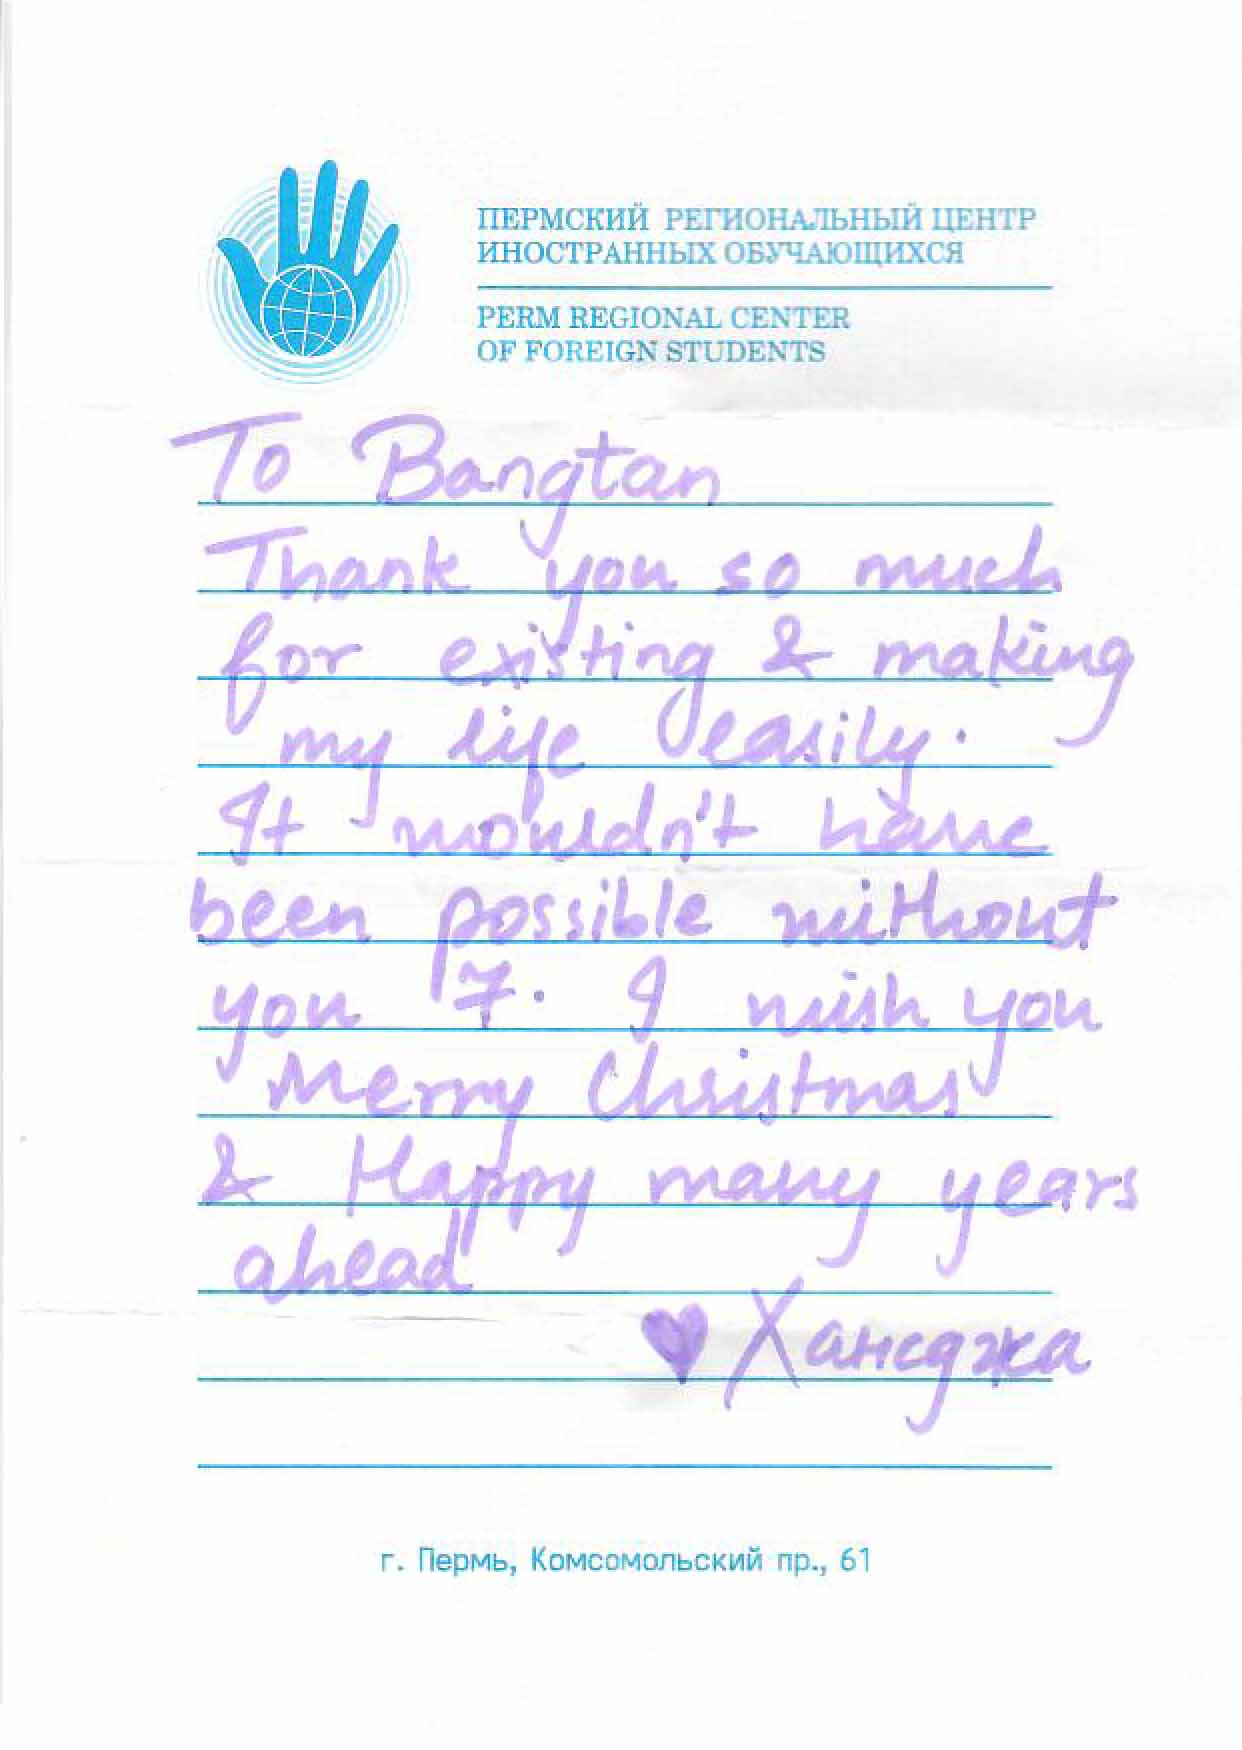 ПЕРМСКИЙ РЕГИОНАЛЬНЫЙ ЦЕНТР
ИНОСТРАННЫХ ОБУЧАЮЩИХСЯ
PERM REGIONAL CENTER
OF FOREIGN STUDENTS
To Bangtan
Thank you so much
for existing & making
my life easily.
It wouldn't have
been possible without
you 7. I wish you
Merry Christmas
& Happy many years
ahead
♥ Хансджа
г. Пермь, Комсомольский пр., 61